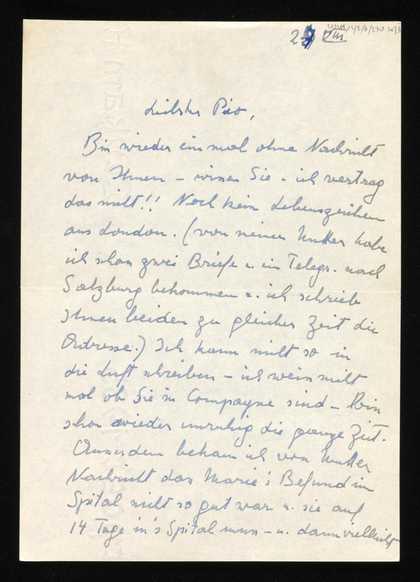 Liebster Piero,
Bin wieder einmal ohne Nachricht
von Ihnen – wissen Sie – ich vertrag
das nicht!! Noch kein Lebenszeichen
aus London. (von meiner Mutter habe
ich schon zwei Briefe u. ein Telegr. nach
Salzburg bekommen u. ich schrieb
Ihnen beiden zu gleicher Zeit die
Adresse.) Ich kann nicht so in
die Luft schreiben – ich weiss nicht
mal ob Sie in Compagne sind – Bin
schon wieder unruhig die ganze Zeit.
Ausserdem bekam ich von Mutter
Nachricht das Marie's Befund im
Spital nicht so gut war u. sie auf
14 Tage in's Spital muss – u. dann vielleicht